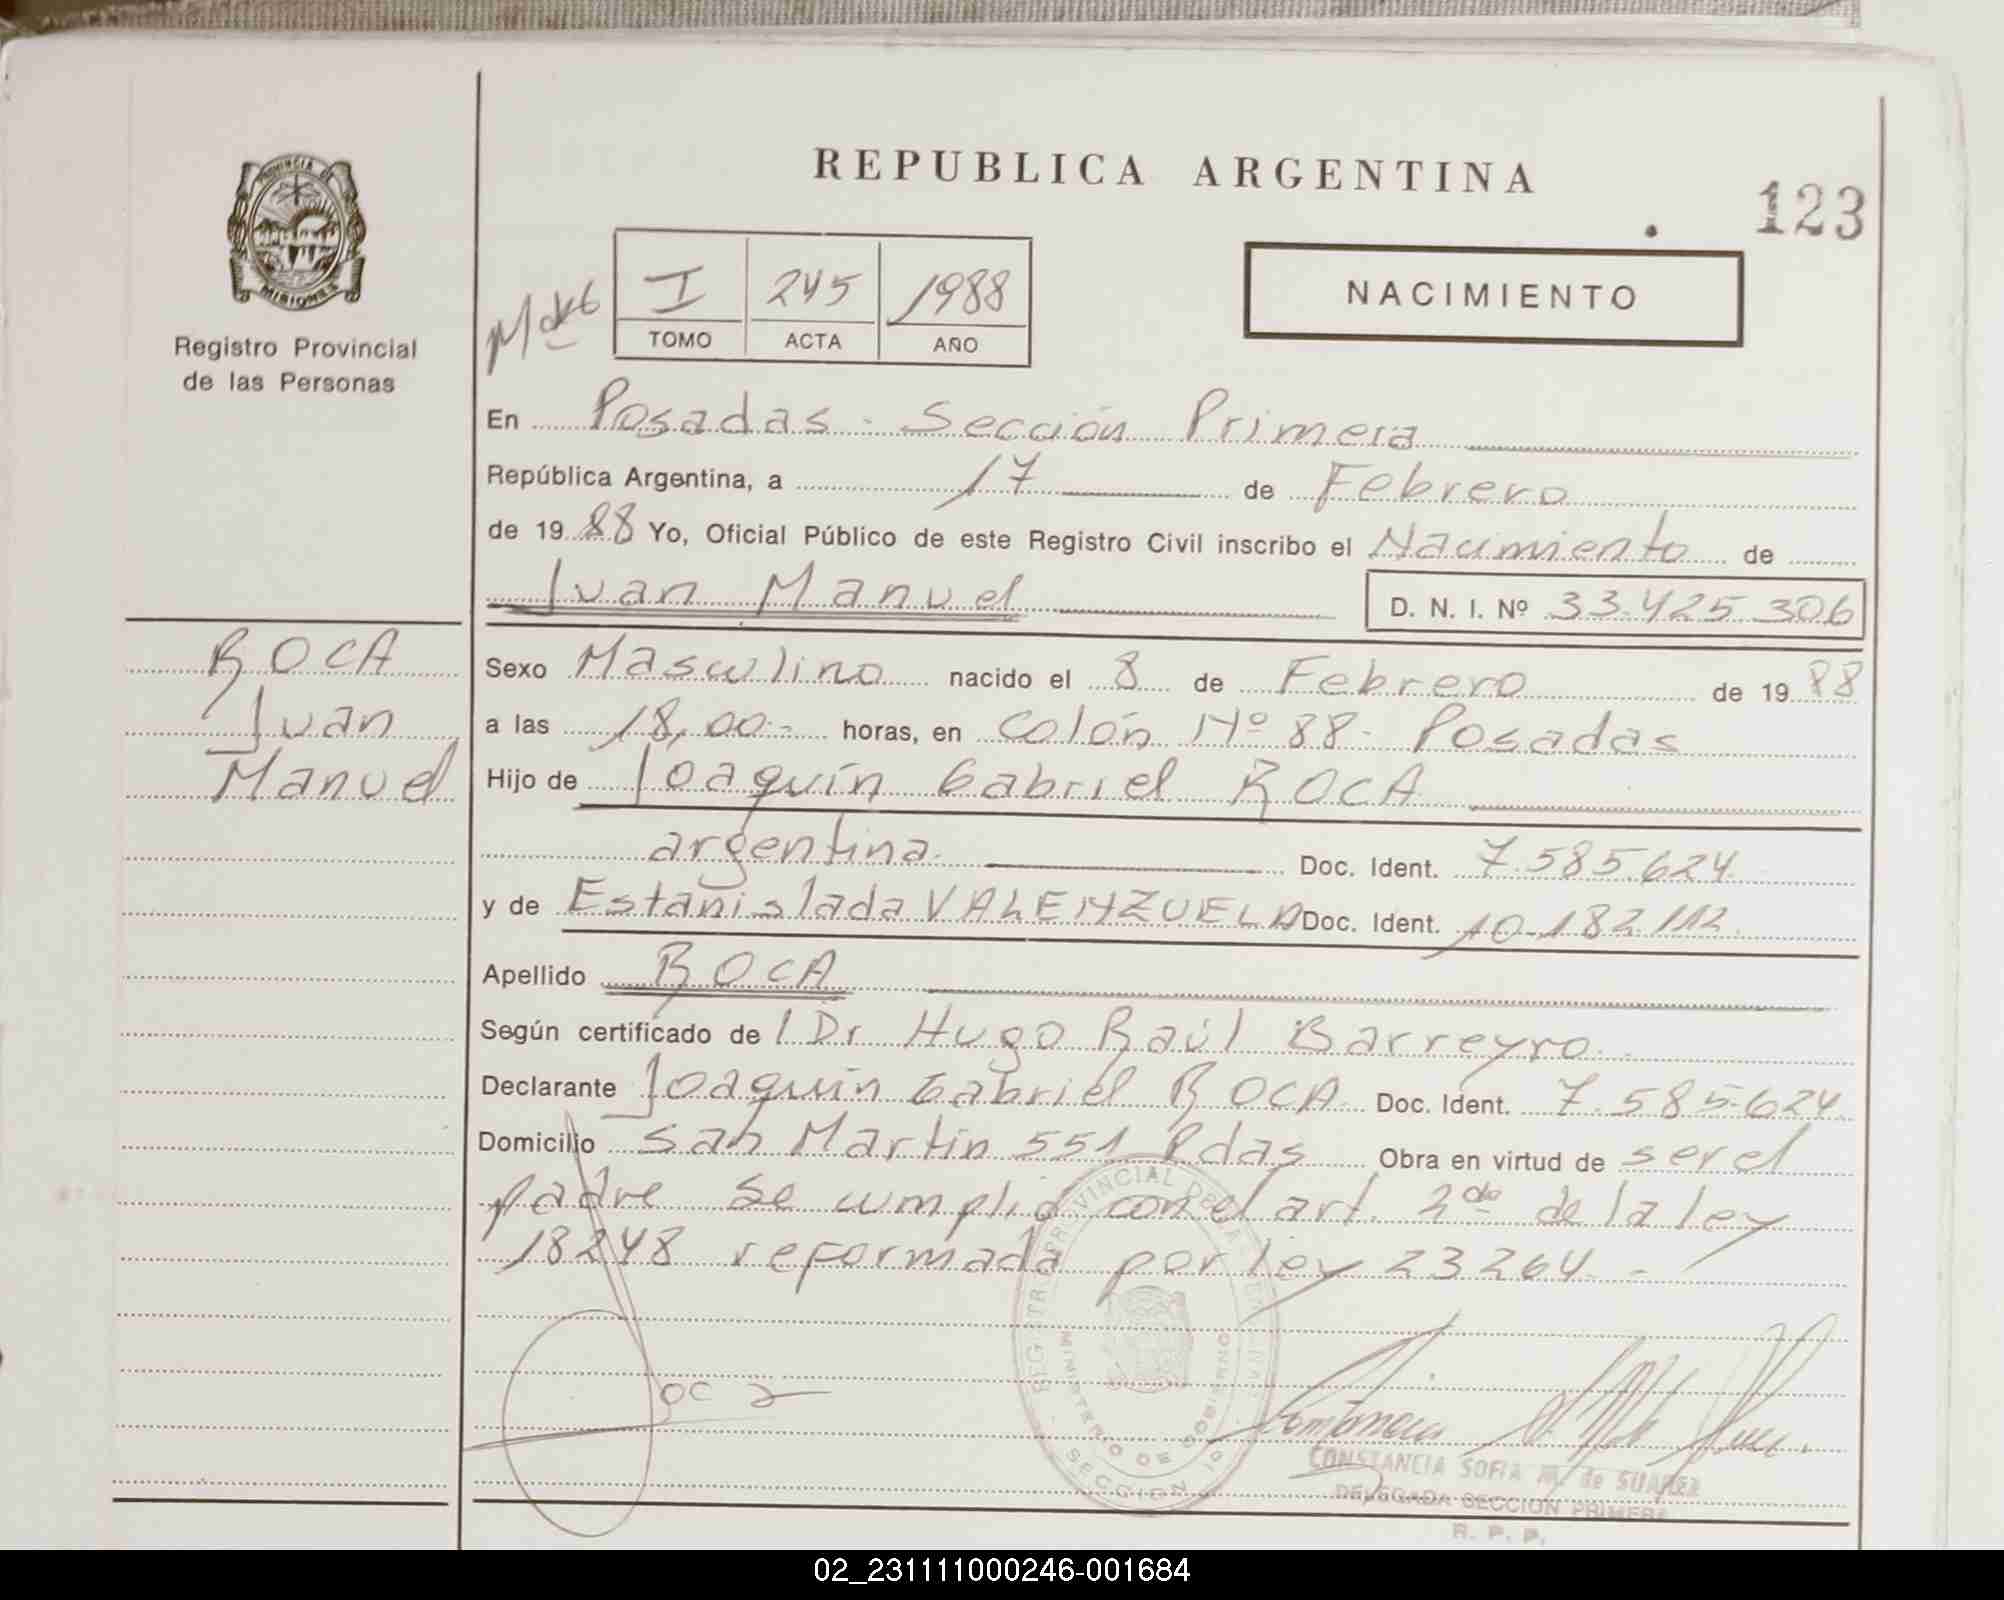 REPUBLICA ARGENTINA
123
PROVINCIA DE
MISIONES
Registro Provincial
de las Personas
I 245 1988
TOMO ACTA AÑO
NACIMIENTO
En Posadas - Sección Primera
República Argentina, a 17 de Febrero
de 1988 Yo, Oficial Público de este Registro Civil inscribo el Nacimiento de
Juan Manuel D. N. I. Nº 33.425.306
ROCA
Juan
Manuel
Sexo Masculino nacido el 8 de Febrero de 1988
a las 18,00.- horas, en Colón Nº 88- Posadas
Hijo de Joaquín Gabriel ROCA
argentina. Doc. Ident. 7.585.624
y de Estanislada VALENZUELA Doc. Ident. 10.182.112.
Apellido ROCA
Según certificado del Dr Hugo Raúl Barreyro.
Declarante Joaquín Gabriel ROCA Doc. Ident. 7.585.624
Domicilio San Martin 551 Pdas Obra en virtud de ser el
padre se cumplió con el art. 2do de la ley
18248 reformada por ley 23264. -
REGISTRO PROVINCIAL DE LAS PERSONAS
MINISTERIO DE GOBIERNO
SECCION 1a
CONSTANCIA SOFIA M. de SUAREZ
DELEGADA SECCION PRIMERA
R. P. P.
02_231111000246-001684